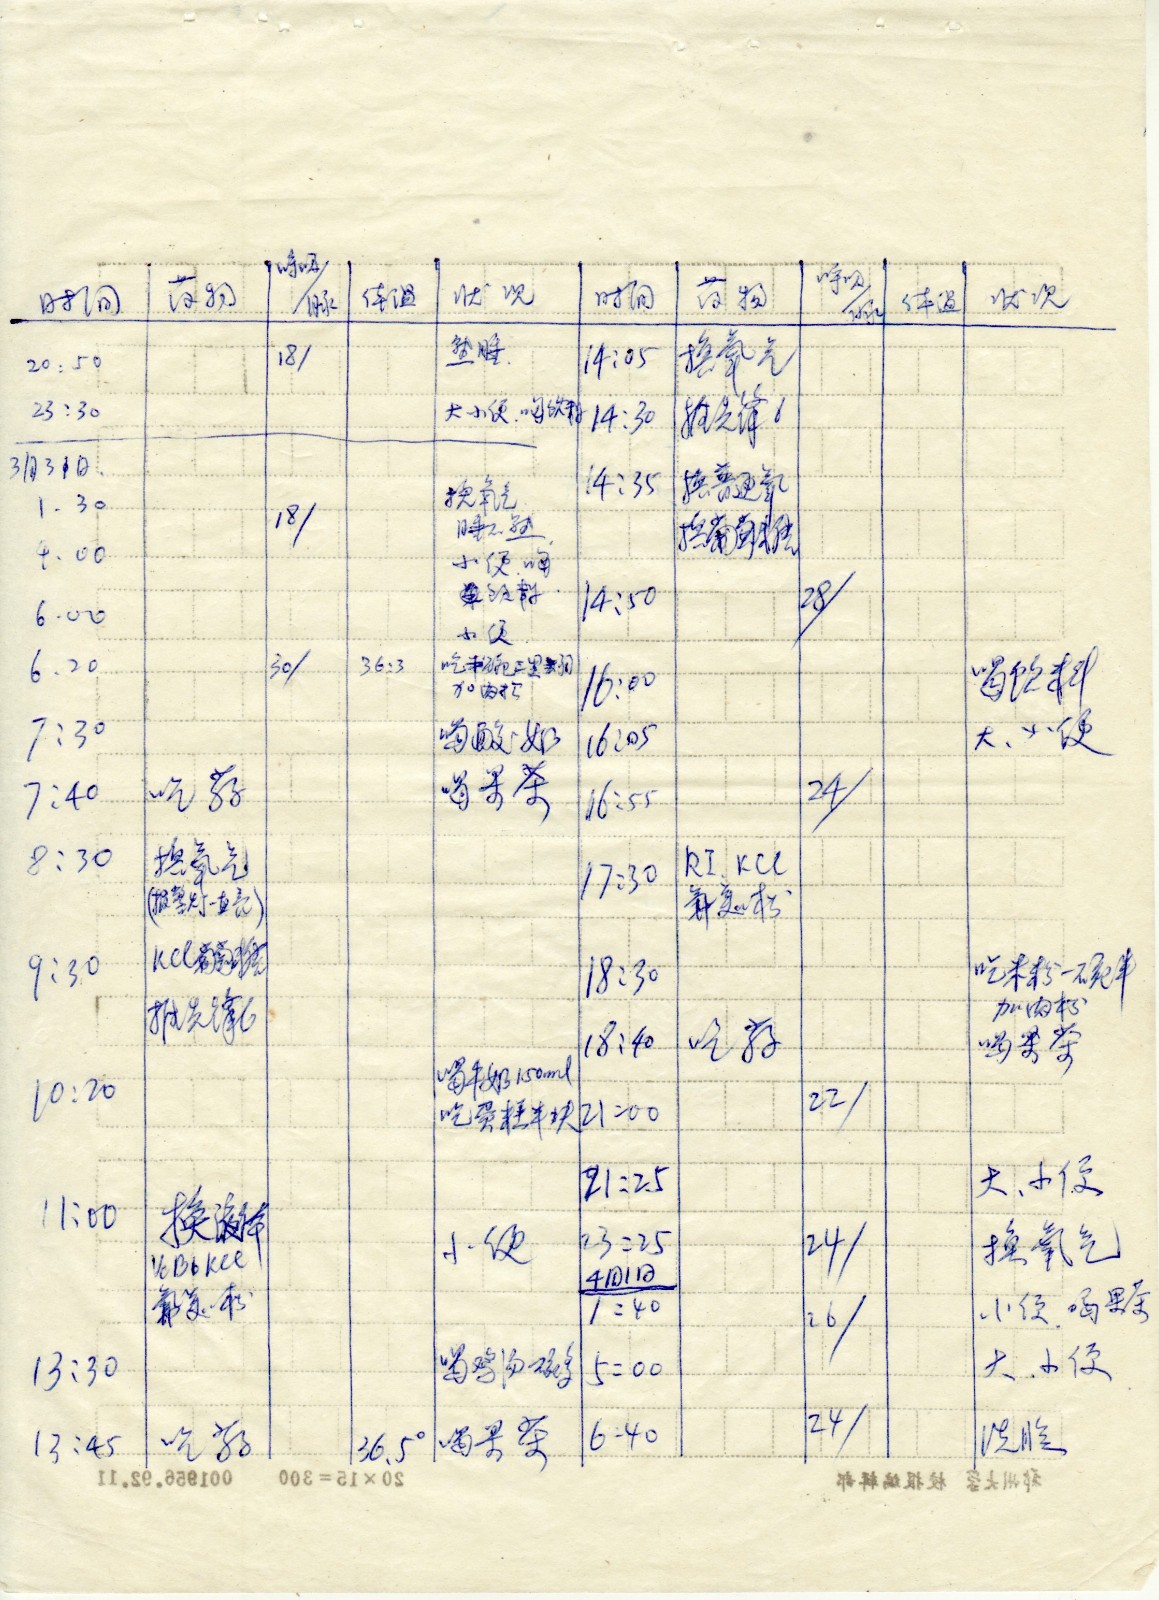 时间 药物 呼吸/脉 体温 状况
20:50 18/ 熟睡.
23:30 大小便.喝饮料
3月31日.
1.30 18/ 换氧气
睡不熟
4.00 小便.喝
饮料.
6.00 小便.
6.20 30/ 36:3
加肉松
7:30 喝酸奶
7:40 吃药 喝果茶
8:30 换氧气
(报警灯一直亮)
9:30 KCl葡萄糖
推先锋6
10:20 喝牛奶150ml
吃蛋糕半块
11:00 换液体 小便
B6 KCl
氟美松
13:30 喝鸡汤
13:45 吃药 36.5° 喝果茶
时间 药物 呼吸/脉 体温 状况
14:05 换氧气
14:30 推先锋6
14:35 换普通氧
换葡萄糖
14:50 28/
16:00 喝饮料
16:05 大、小便
16:55 24/
17:30 RI. KCl
氟美松
18:30 吃米粉一碗半
加肉松
18:40 吃药 喝果茶
21:00 22/
21:25 大、小便
23:25 24/ 换氧气
4月1日
1:40 26/ 小便.喝果茶
5:00 大、小便
6:40 24/ 洗脸
001956.92.11 20×15=300 郑州大学 校报编辑部